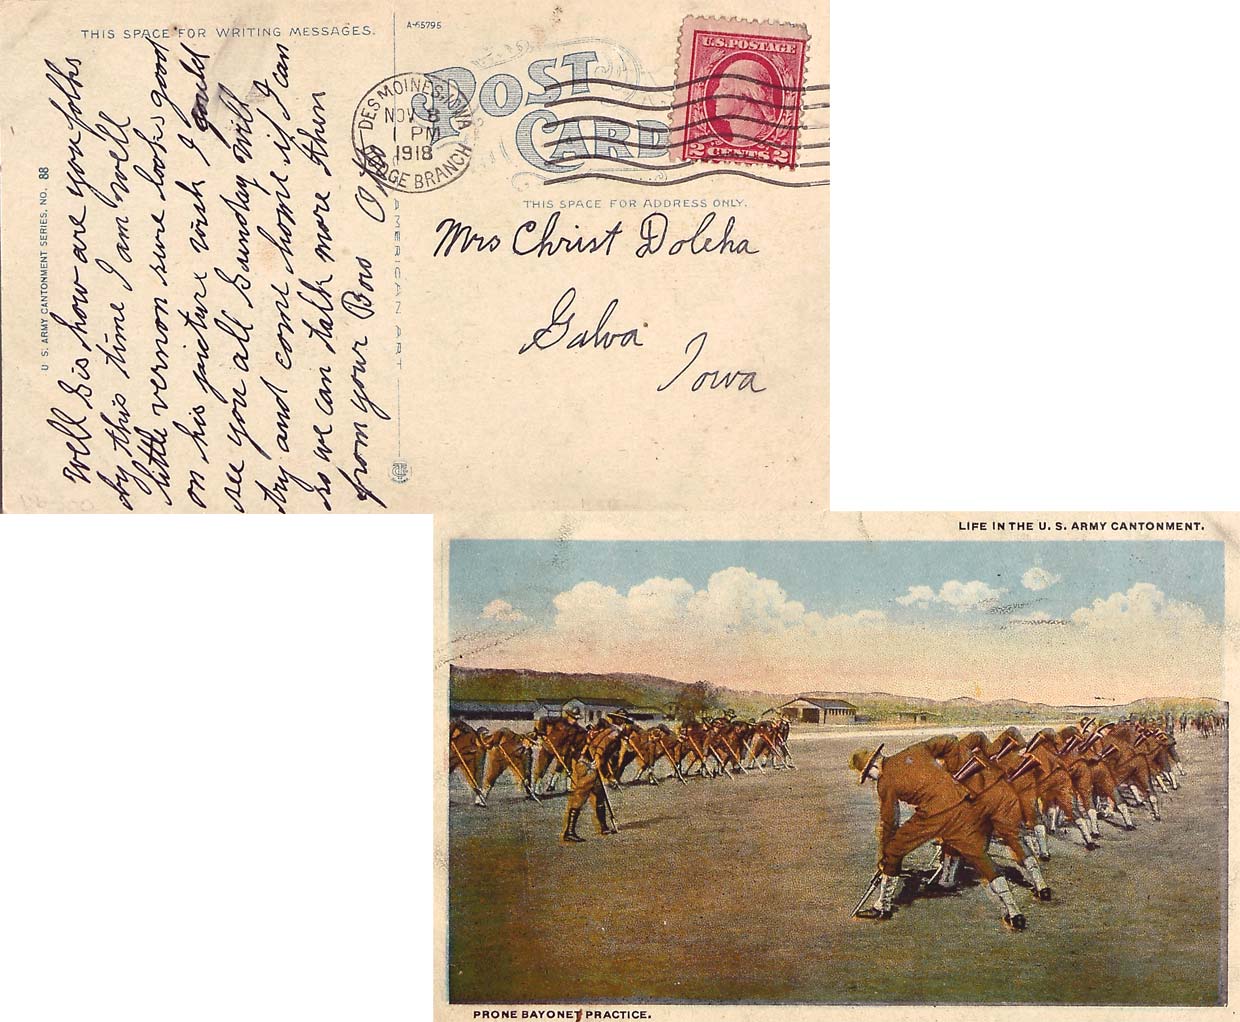 THIS SPACE FOR WRITING MESSAGES.
A-65795
POST
CARD
DES MOINES, IOWA
NOV 8
1 PM
1918
DODGE BRANCH
U.S. POSTAGE
2 CENTS 2
THIS SPACE FOR ADDRESS ONLY.
U. S. ARMY CANTONMENT SERIES, NO. 88
AMERICAN ART
Well Sis how are you folks
by this time I am well
little vernon sure looks good
on his picture wish I could
see you all Sunday will
try and come home if I can
so we can talk more then
from your Bro Otto
Mrs Christ Doleha
Galva
Iowa
LIFE IN THE U. S. ARMY CANTONMENT.
PRONE BAYONET PRACTICE.